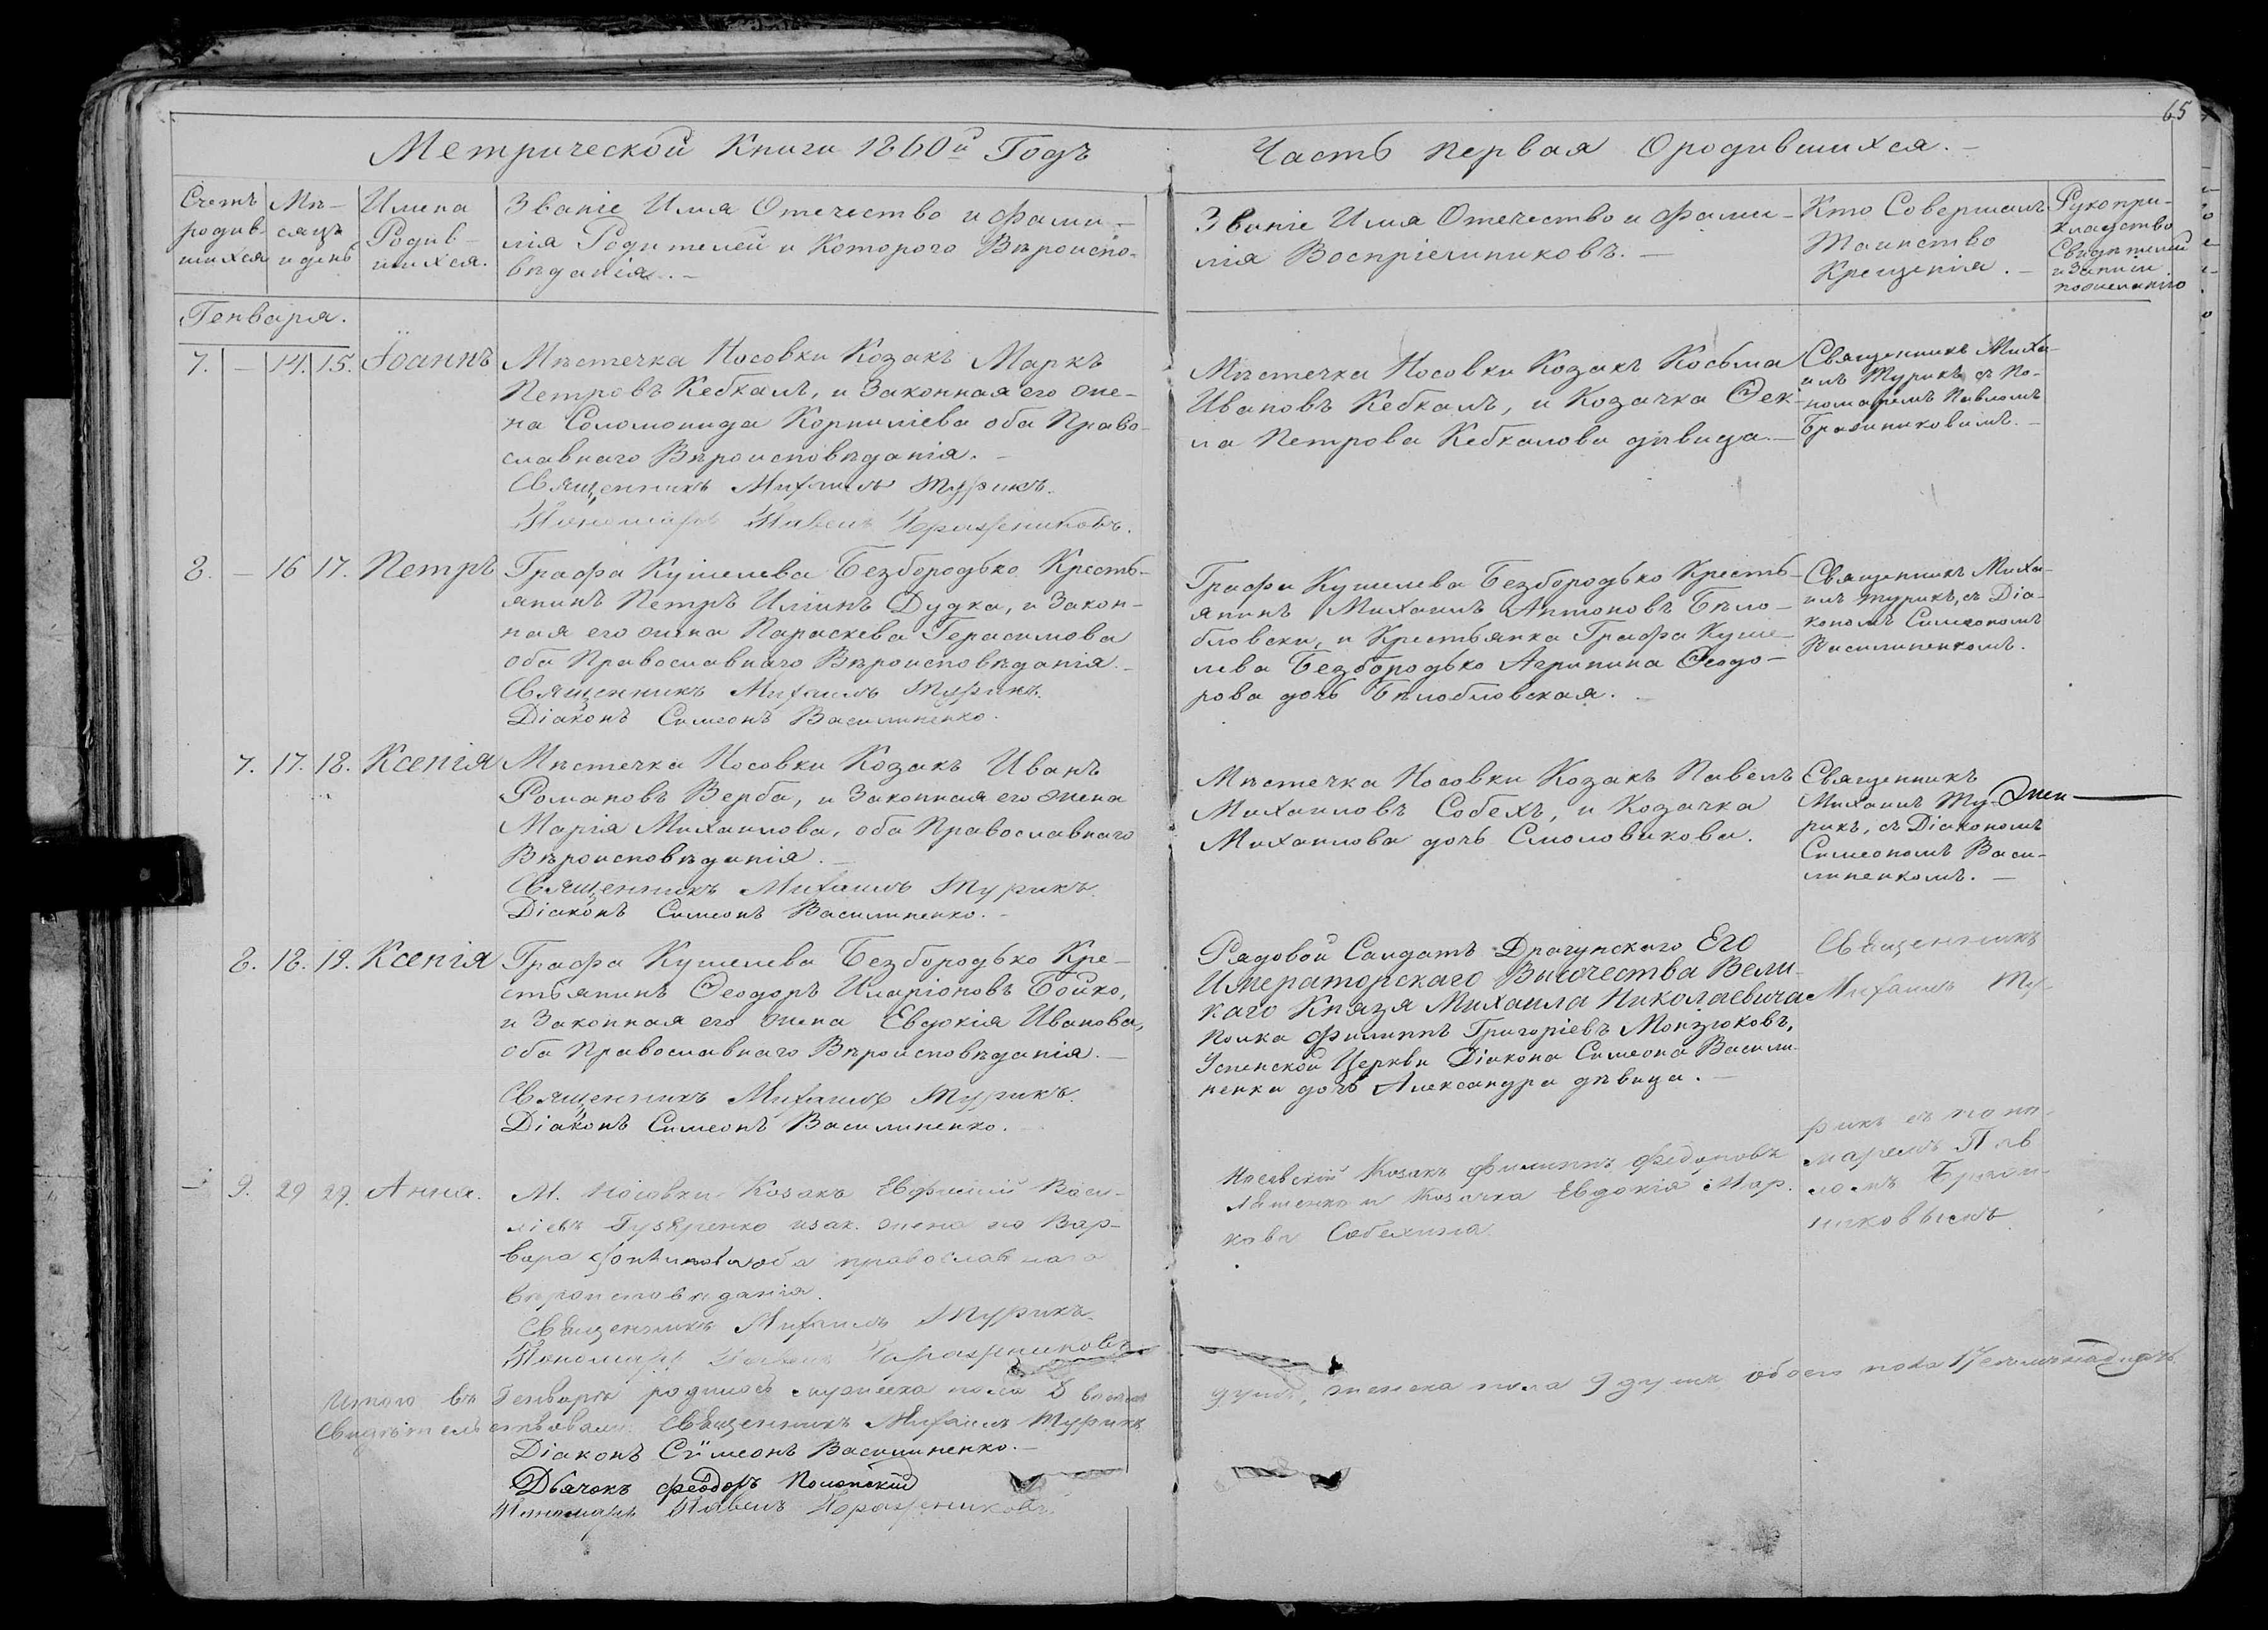 65
Метрической Книги 1860й Годъ
Часть первая О родившихся. —
Счетъ родив- шихся
Мѣ- сяцъ и день
Имена Родив- шихся.
Званіе Имя Отечество и Фами-
лія Родителей и Которого Вѣроиспо-
вѣданія. —
Званіе Имя Отечество и Фами-
лія Воспріемниковъ. —
Кто Совершалъ
Таинство
Крещенія. —
Рукопри-
кладство
Свидѣтелей
и Записи
по желанію
Генваря.
7. — 14. 15. Іоаннъ
Мѣстечка Носовки Козакъ Маркъ
Петровъ Кебкалъ, и Законная его же-
на Соломонида Корниліева оба Право-
славнаго Вѣроисповѣданія. —
Священникъ Михаилъ Турикъ.
Пономарь Павелъ Бражниковъ.
Мѣстечка Носовки Козакъ Косьма
Ивановъ Кебкалъ, и Козачка Ѳек-
ла Петрова Кебкалова дѣвица. —
Священникъ Миха-
илъ Турикъ съ По-
номаремъ Павломъ
Бражниковымъ. —
8. — 16 17. Петръ
Графа Кушелева Безбородько Кресть-
янинъ Петръ Иліинъ Дудка, и Закон-
ная его жена Параскева Герасимова
оба Православнаго Вѣроисповѣданія. —
Священникъ Михаилъ Турикъ.
Діаконъ Симеонъ Василиненко.
Графа Кушелева Безбородько Кресть-
янинъ Михаилъ Антоновъ Бѣло-
бловски, и Крестьянка Графа Куше-
лева Безбородько Агрипина Ѳеодо-
рова дочь Бѣлобловская. —
Священникъ Миха-
илъ Турикъ, съ Діа-
кономъ Симеономъ
Василиненкомъ.
7. 17. 18. Ксенія
Мѣстечка Носовки Козакъ Иванъ
Романовъ Верба, и Законная его жена
Марія Михаилова, оба Православнаго
Вѣроисповѣданія. —
Священникъ Михаилъ Турикъ.
Діаконъ Симеонъ Василиненко. —
Мѣстечка Носовки Козакъ Павелъ
Михаиловъ Собехъ, и Козачка
Михаилова дочь Смоловикова.
Священникъ
Михаилъ Ту-
рикъ, съ Діакономъ
Симеономъ Васи-
линенкомъ. —
8. 18. 19. Ксенія
Графа Кушелева Безбородько Кре-
стьянинъ Ѳеодоръ Иларіоновъ Бойко,
и Законная его жена Евдокія Иванова,
оба Православнаго Вѣроисповѣданія. —
Священникъ Михаилъ Турикъ.
Діаконъ Симеонъ Василиненко.
Рядовой Салдатъ Драгунскаго Его
Императорскаго Высочества Вели-
каго Князя Михаила Николаевича
полка Филиппъ Григоріевъ
Успенской Церкви Діакона Симеона Васили-
ненки дочь Александра дѣвица. —
Священникъ
Михаилъ Ту-
рикъ съ поно-
маремъ Пав
ломъ Бражн-
иковымъ
9. 29 29. Анна.
М. Носовки Козакъ Евфимій Васи-
ліевъ и зак. жена его Вар-
вара оба православнаго
вѣроисповѣданія.
Священникъ Михаилъ Турикъ
Пономарь Павелъ Бражниковъ
Носовскій Козакъ Филиппъ
и Козачка Евдокія Мар-
кова Собехина
Итого въ Генварѣ родилось мужеска пола 8
душъ, женска пола 9 душъ обоего пола 17
Свидѣтельствовали: Священникъ Михаилъ Турикъ
Діаконъ Симеонъ Василиненко. —
Дьячокъ Феодоръ
Пономарь Павелъ Бражниковъ